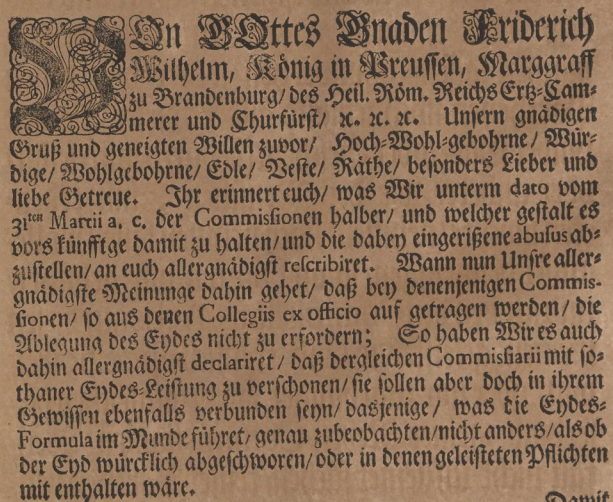 VOn GOttes Gnaden Friderich
Wilhelm, König in Preussen, Marggraff
zu Brandenburg/ des Heil. Röm. Reichs Ertz-Cam-
merer und Churfürst/ ꝛc. ꝛc. ꝛc. Unsern gnädigen
Gruß und geneigten Willen zuvor/ Hoch-Wohl-gebohrne/ Wür-
dige/ Wohlgebohrne/ Edle/ Veste/ Räthe/ besonders Lieber und
liebe Getreue. Ihr erinnert euch/ was Wir unterm dato vom
31ten Martii a. c. der Commissionen halber/ und welcher gestalt es
vors künfftge damit zu halten/ und die dabey eingerißene abusus ab-
zustellen/ an euch allergnädigst rescribiret. Wann nun Unsre aller-
gnädigste Meinunge dahin gehet/ daß bey denenjenigen Commis-
sionen/ so aus denen Collegiis ex officio auf getragen werden/ die
Ablegung des Eydes nicht zu erfordern; So haben Wir es auch
dahin allergnädigst declariret/ daß dergleichen Commissarii mit so-
thaner Eydes-Leistung zu verschonen/ sie sollen aber doch in ihrem
Gewissen ebenfalls verbunden seyn/ dasjenige/ was die Eydes-
Formula im Munde führet/ genau zubeobachten/ nicht anders/ als ob
der Eyd würcklich abgeschworen/ oder in denen geleisteten Pflichten
mit enthalten wäre.
Damit